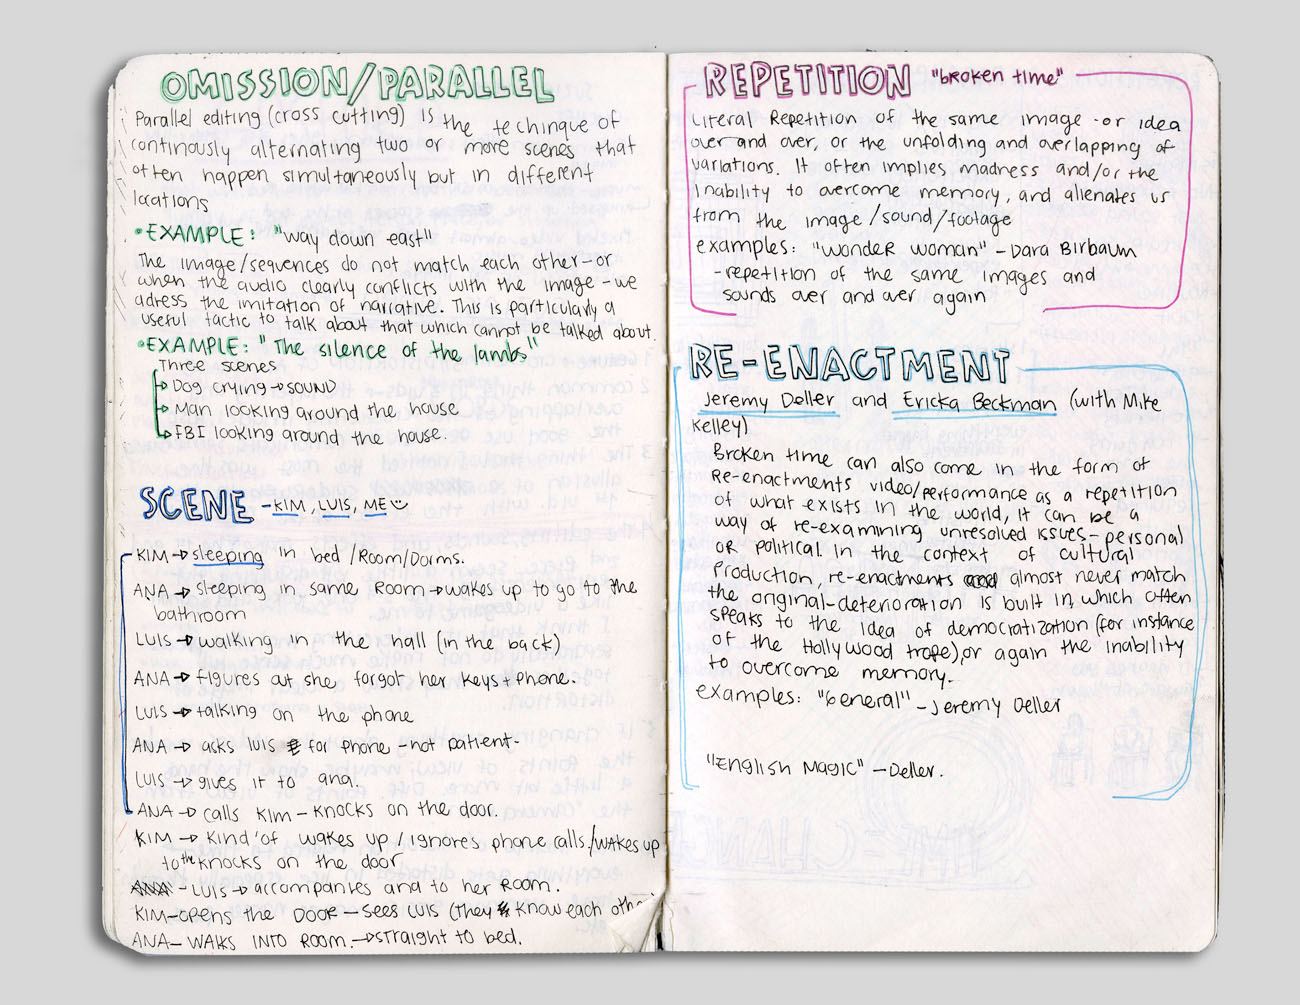 OMISSION/PARALLEL
Parallel editing (cross cutting) is the techinque of
continously alternating two or more scenes that
often happen simultaneously but in different
locations
• EXAMPLE: "way down east"
The image/sequences do not match each other-or
when the audio clearly conflicts with the image-we
adress the imitation of narrative. This is particularly a
useful tactic to talk about that which cannot be talked about.
• EXAMPLE: "The silence of the lambs"
Three scenes
→ Dog crying → SOUND
→ Man looking around the house
→ FBI looking around the house.
SCENE -KIM, LUIS, ME
KIM → sleeping in bed /Room/Dorms.
ANA → sleeping in same Room → wakes up to go to the
bathroom
LUIS → walking in the hall (in the back)
ANA → figures out she forgot her keys + phone.
LUIS → talking on the phone
ANA → asks luis for phone -not patient-
LUIS → gives it to ana.
ANA → calls KIM - knocks on the door.
KIM → Kind of wakes up / ignores phone calls./wakes up
to the knocks on the door
ANA - LUIS → accompanies and to her Room.
KIM-opens the DOOR - sees LUIS (they know each othe
ANA- WALKS INTO ROOM. → straight to bed.
REPETITION "broken time"
Literal Repetition of the same image -or idea
over and over, or the unfolding and overlapping of
variations. It often implies madness and/or the
Inability to overcome memory, and alienates us
from the image/sound/footage
examples: "wonder woman" - Dara Birbaum
-repetition of the same images and
sounds over and over again
RE-ENACTMENT
Jeremy Deller and Ericka Beckman (with Mike
Kelley)
Broken time can also come in the form of
Re-enactments video/performance as a repetition
of what exists in the world, it can be a
way of re-examining unresolved issues-personal
or political. In the context of cultural
production, re-enactments almost never match
the original-deterioration is built in, which often
speaks to the idea of democratization (for instance
of the Hollywood trope), or again the inability
to overcome memory.
examples: "beneral" - Jeremy Deller
"English Magic" - Deller.